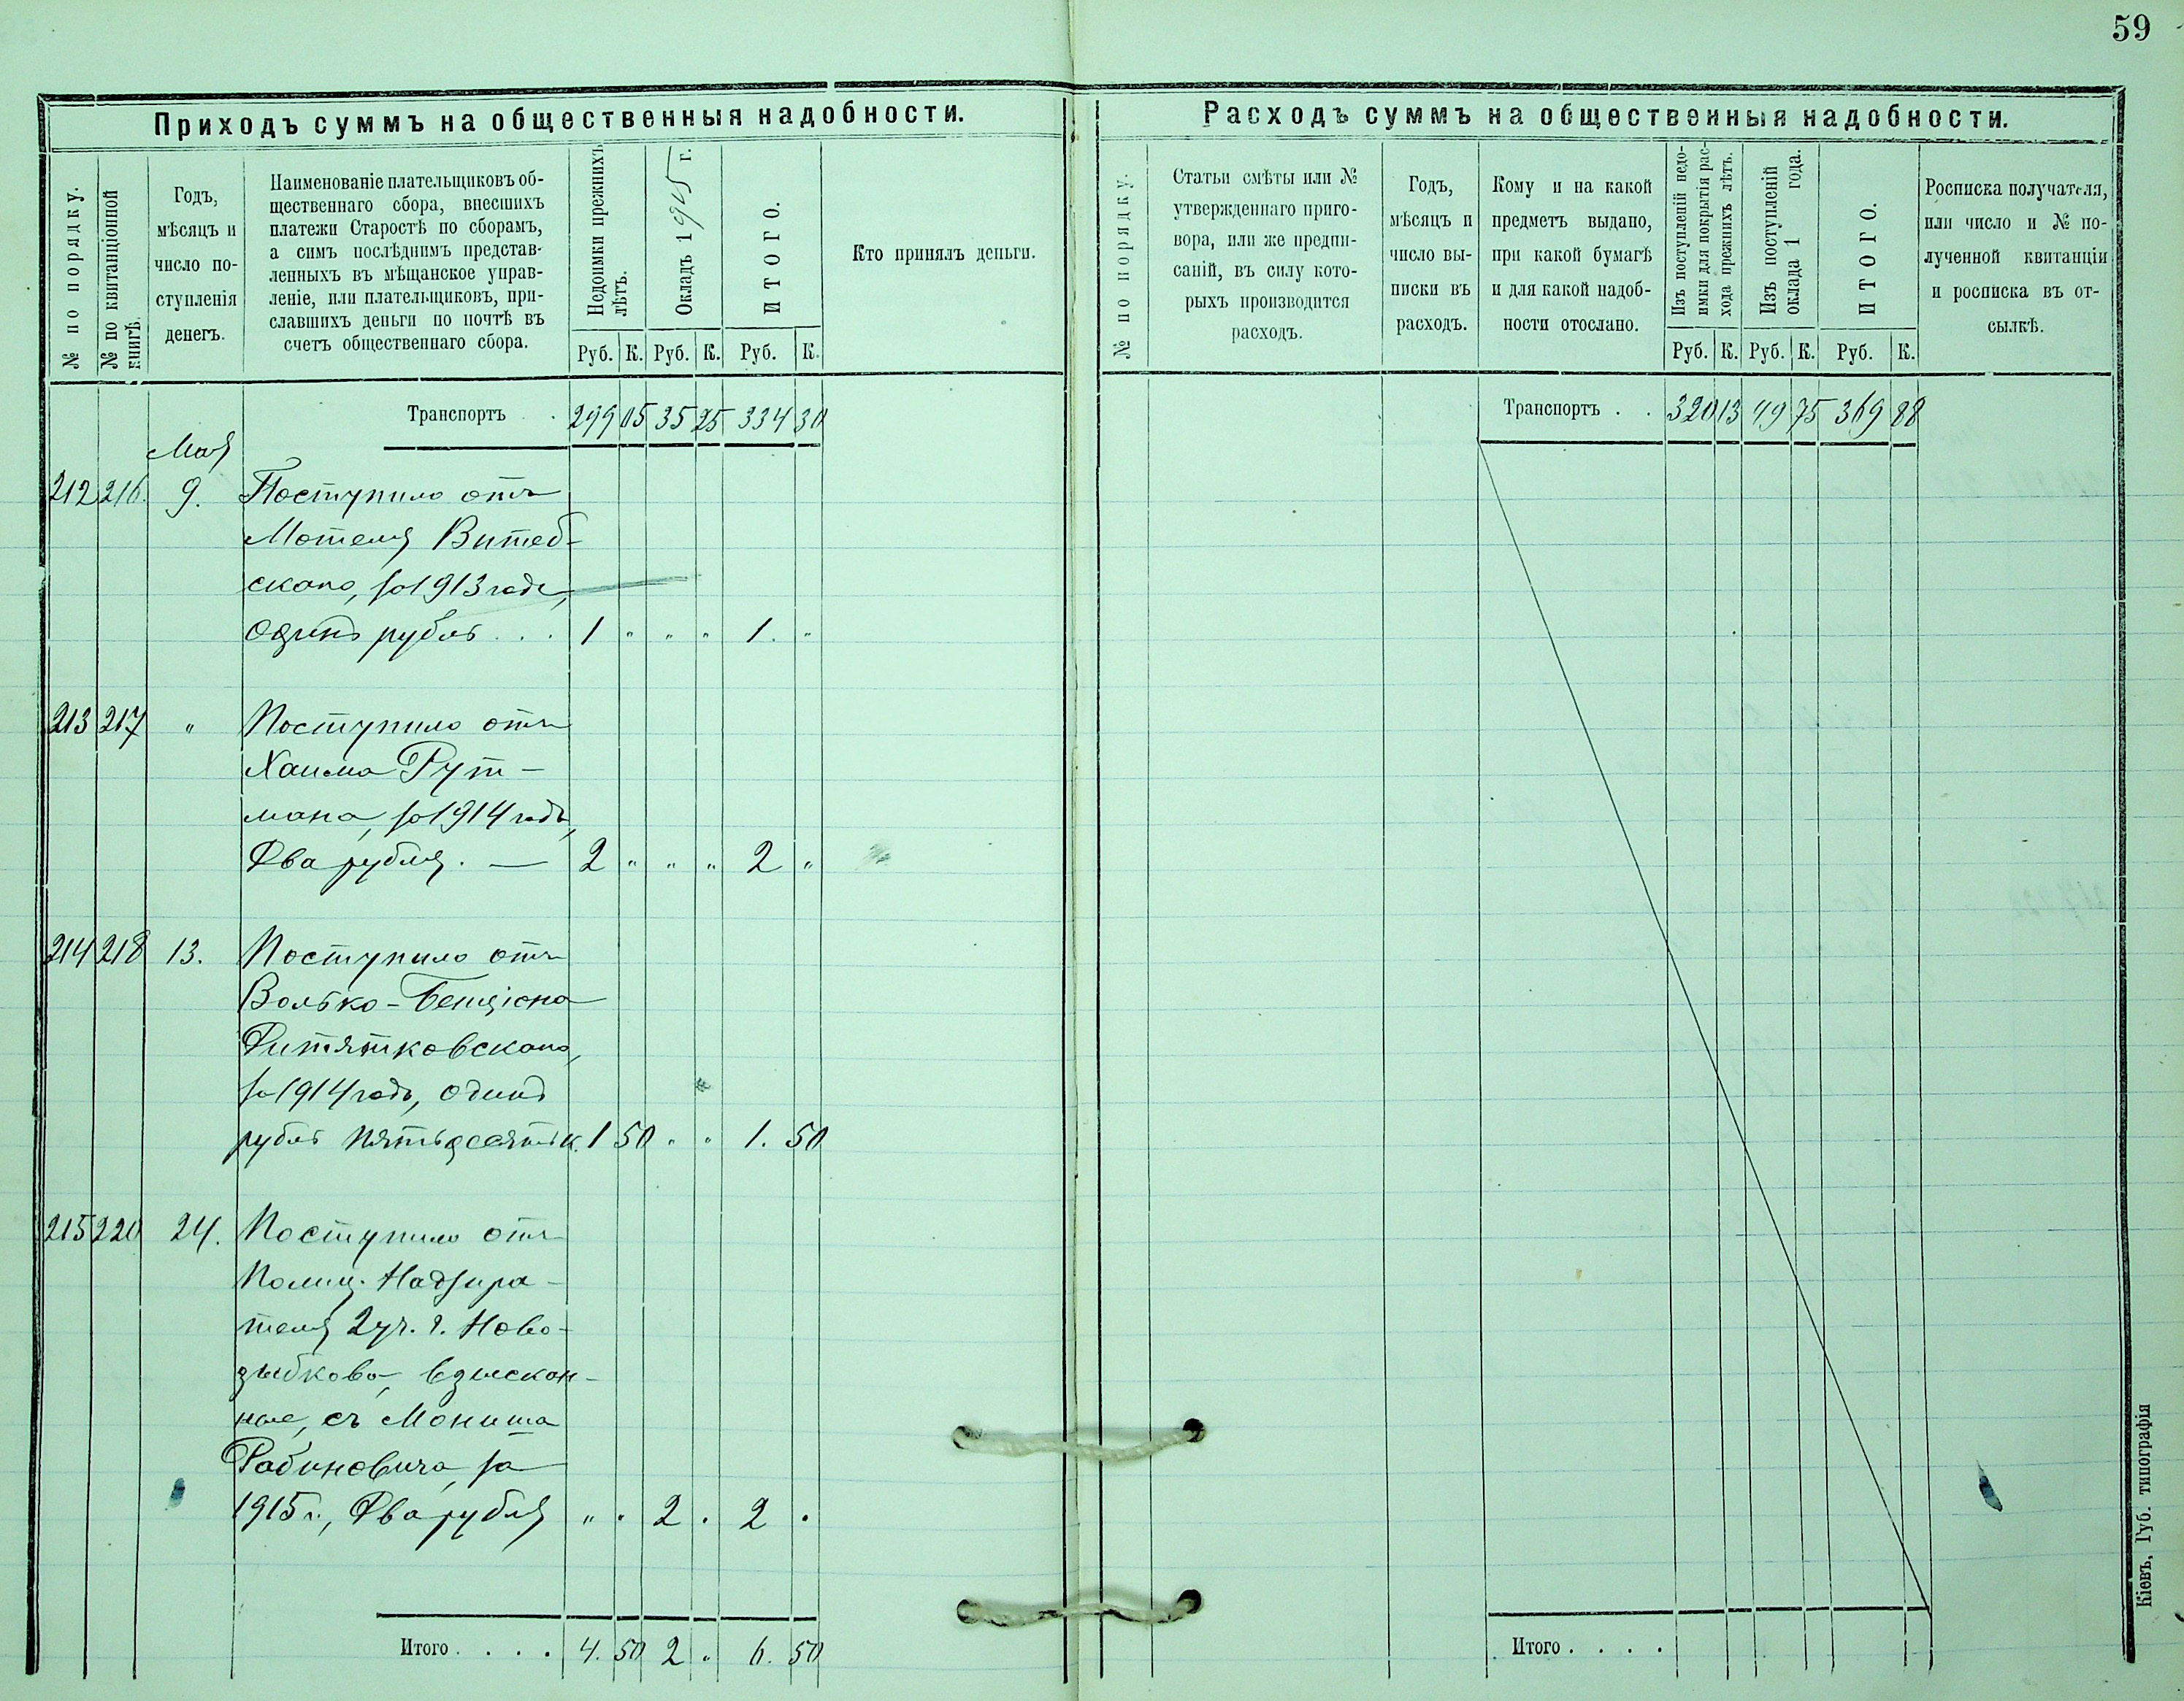 59
Приходъ суммъ на общественныя надобности.
№ по порядку.
№ по квитанціонной
книгѣ.
Годъ,
мѣсяцъ и
число по-
ступленія
денегъ.
Наименованіе плательщиковъ об-
щественнаго сбора, внесшихъ
платежи Старостѣ по сборамъ,
а симъ послѣднимъ представ-
ленныхъ въ мѣщанское управ-
леніе, или плательщиковъ, при-
славшихъ деньги по почтѣ въ
счетъ общественнаго сбора.
Недоимки прежнихъ
лѣтъ.
Окладъ 1915 г.
ИТОГО.
Руб. К. Руб. К. Руб. К.
Кто принялъ деньги.
Транспортъ . 299 05 35 25 334 30
Мая
212 216. 9. Поступило отъ
Мотеля Витеб-
скаго, за 1913 годъ,
Одинъ рубль . . . 1 " " " 1. "
213 217 " Поступило отъ
Хаима Рут-
мана, за 1914 годъ,
Два рубля. — 2 " " " 2 "
214 218 13. Поступило отъ
Волько-Бенціона
Фитятковскаго,
за 1914 годъ, одинъ
рубль пятьдесятъ к. 1 50 " " 1. 50
215 220 24. Поступило отъ
Полиц. Надзира-
теля 2 уч. г. Ново-
зыбкова, взыскан-
ные, съ Мониша
Рабиновича, за
1915 г., Два рубля " . 2 . 2 .
Итого . . . . 4. 50 2 " 6. 50
Расходъ суммъ на общественныя надобности.
№ по порядку.
Статьи смѣты или №
утвержденнаго приго-
вора, или же предпи-
саній, въ силу кото-
рыхъ производится
расходъ.
Годъ,
мѣсяцъ и
число вы-
писки въ
расходъ.
Кому и на какой
предметъ выдано,
при какой бумагѣ
и для какой надоб-
ности отослано.
Изъ поступленій недо-
имки для покрытія рас-
хода прежнихъ лѣтъ.
Изъ поступленій
оклада 1 года.
ИТОГО.
Руб. К. Руб. К. Руб. К.
Росписка получателя,
или число и № по-
лученной квитанціи
и росписка въ от-
сылкѣ.
Транспортъ . . 320 13 49 75 369 88
Итого . . . .
Кіевъ, Губ. типографія